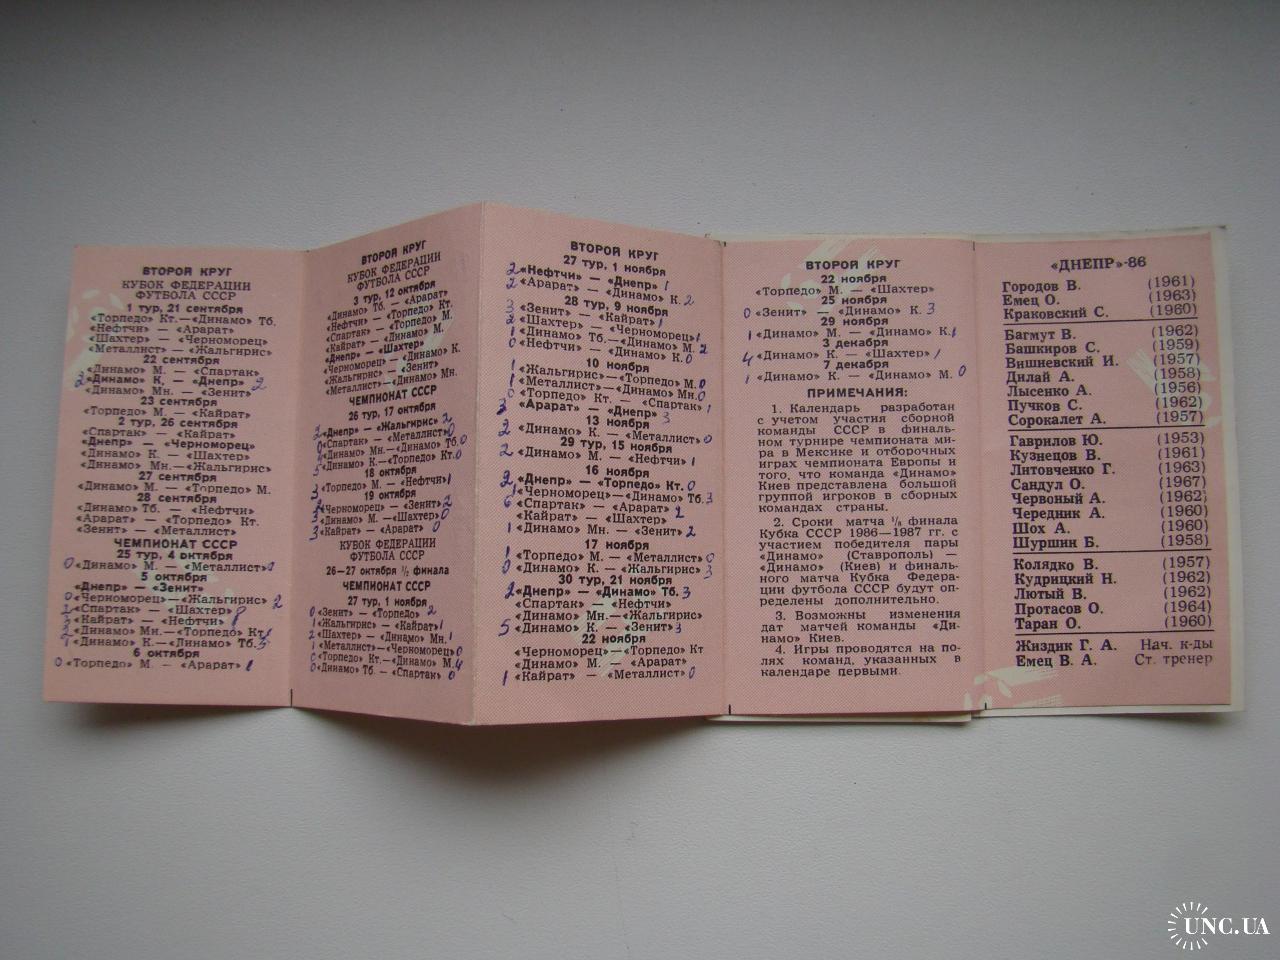 ВТОРОЙ КРУГ
КУБОК ФЕДЕРАЦИИ
ФУТБОЛА СССР
1 тур, 21 сентября
«Торпедо» Кт.—«Динамо» Тб.
«Нефтчи» — «Арарат»
«Шахтер» — «Черноморец»
«Металлист» — «Жальгирис»
22 сентября
«Динамо» М. — «Спартак»
«Динамо» К. — «Днепр» 2
«Динамо» Мн. — «Зенит»
23 сентября
«Торпедо» М. — «Кайрат»
2 тур, 26 сентября
«Спартак» — «Кайрат»
«Днепр» — «Черноморец»
«Динамо» К. — «Шахтер»
«Динамо» Мн. — «Жальгирис»
27 сентября
«Динамо» М. — «Торпедо» М.
28 сентября
«Динамо» Тб. — «Нефтчи»
«Арарат» — «Торпедо» Кт.
«Зенит» — «Металлист»
ЧЕМПИОНАТ СССР
25 тур, 4 октября
0 «Динамо» М. — «Металлист»
5 октября
«Днепр» — «Зенит»
0 «Черноморец»—«Жальгирис» 2
«Спартак» — «Шахтер»
3 «Кайрат» — «Нефтчи»
«Динамо» Мн.—«Торпедо» Кт
«Динамо» К.—«Динамо» Тб.
6 октября
0 «Торпедо» М. — «Арарат» 1
ВТОРОЙ КРУГ
КУБОК ФЕДЕРАЦИИ
ФУТБОЛА СССР
3 тур, 12 октября
«Динамо» Тб. — «Арарат»
«Нефтчи» — «Торпедо» Кт.
«Спартак» — «Торпедо» М.
«Кайрат» — «Динамо» М.
«Днепр» — «Шахтер»
«Черноморец» — «Динамо» К.
«Жальгирис» — «Зенит»
«Металлист»—«Динамо» Мн.
ЧЕМПИОНАТ СССР
26 тур, 17 октября
2 «Днепр» — «Жальгирис» 2
0 «Спартак» — «Металлист» 0
«Динамо» Мн.—«Динамо» Тб. 0
5 «Динамо» К.—«Торпедо» Кт. 0
18 октября
3 «Торпедо» М. — «Нефтчи» 1
19 октября
«Черноморец» — «Зенит» 2
3 «Динамо» М. —«Шахтер» 0
3 «Кайрат» — «Арарат» 0
КУБОК ФЕДЕРАЦИИ
ФУТБОЛА СССР
26—27 октября ½ финала
ЧЕМПИОНАТ СССР
27 тур, 1 ноября
0 «Зенит» — «Торпедо» 2
1 «Жальгирис» — «Кайрат» 1
2 «Шахтер» — «Динамо» Мн. 1
1 «Металлист»—«Черноморец» 0
0 «Торпедо» Кт.—«Динамо» М. 4
0 «Динамо» Тб. — «Спартак» 0
ВТОРОЙ КРУГ
27 тур, 1 ноября
2 «Нефтчи» — «Днепр» 1
2 «Арарат» — «Динамо» К. 2
28 тур, 9 ноября
3 «Зенит» — «Кайрат» 1
2 «Шахтер» — «Черноморец» 1
1 «Динамо» Тб.—«Динамо» М. 2
0 «Нефтчи» — «Динамо» К. 0
10 ноября
1 «Жальгирис»—«Торпедо» М. 0
1 «Металлист»—«Динамо» Мн. 0
0 «Торпедо» Кт. — «Спартак» 1
3 «Арарат» — «Днепр» 3
13 ноября
2 «Динамо» К. — «Металлист» 0
29 тур, 15 ноября
2 «Динамо» М. — «Нефтчи» 1
16 ноября
2 «Днепр» — «Торпедо» Кт. 0
1 «Черноморец»—«Динамо» Тб. 3
6 «Спартак» — «Арарат» 2
«Кайрат» — «Шахтер»
1 «Динамо» Мн. — «Зенит» 2
17 ноября
1 «Торпедо» М. — «Металлист» 0
0 «Динамо» К. — «Жальгирис» 3
30 тур, 21 ноября
2 «Днепр» — «Динамо» Тб. 3
«Спартак» — «Нефтчи»
«Динамо» Мн. —«Жальгирис»
5 «Динамо» К. — «Зенит» 3
22 ноября
«Черноморец» — «Торпедо» Кт
«Динамо» М. — «Арарат»
1 «Кайрат» — «Металлист» 0
ВТОРОЙ КРУГ
22 ноября
«Торпедо» М. — «Шахтер»
25 ноября
0 «Зенит» — «Динамо» К. 3
29 ноября
1 «Динамо» М. — «Динамо» К. 1
3 декабря
4 «Динамо» К. — «Шахтер» 1
7 декабря
1 «Динамо» К. — «Динамо» М. 0
ПРИМЕЧАНИЯ:
1. Календарь разработан
с учетом участия сборной
команды СССР в финаль-
ном турнире чемпионата ми-
ра в Мексике и отборочных
играх чемпионата Европы и
того, что команда «Динамо»
Киев представлена большой
группой игроков в сборных
командах страны.
2. Сроки матча ⅛ финала
Кубка СССР 1986—1987 гг. с
участием победителя пары
«Динамо» (Ставрополь) —
«Динамо» (Киев) и финаль-
ного матча Кубка Федера-
ции футбола СССР будут оп-
ределены дополнительно.
3. Возможны изменения
дат матчей команды «Ди-
намо» Киев.
4. Игры проводятся на по-
лях команд, указанных в
календаре первыми.
«ДНЕПР»-86
Городов В. (1961)
Емец О. (1963)
Краковский С. (1960)
Багмут В. (1962)
Башкиров С. (1959)
Вишневский И. (1957)
Дилай А. (1958)
Лысенко А. (1956)
Пучков С. (1962)
Сорокалет А. (1957)
Гаврилов Ю. (1953)
Кузнецов В. (1961)
Литовченко Г. (1963)
Сандул О. (1967)
Червоный А. (1962)
Чередник А. (1960)
Шох А. (1960)
Шуршин Б. (1958)
Колядко В. (1957)
Кудрицкий Н. (1962)
Лютый В. (1962)
Протасов О. (1964)
Таран О. (1960)
Жиздик Г. А. Нач. к-ды
Емец В. А. Ст. тренер
UNC.UA